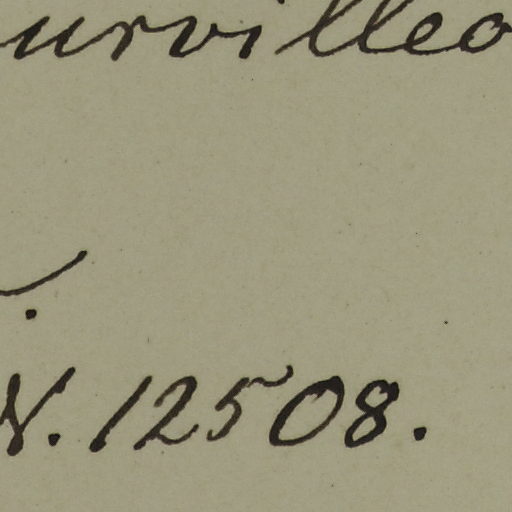 urvilleo
N. 12508.